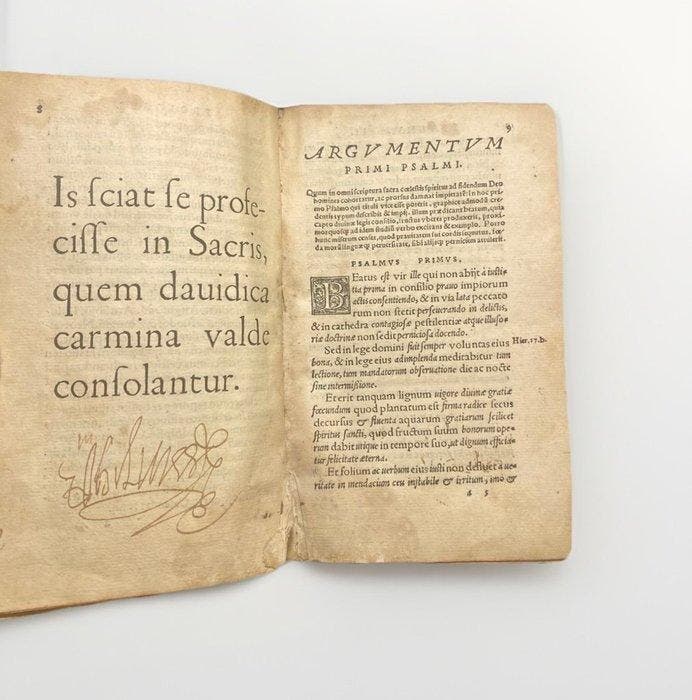 8
Is ſciat ſe profe-
ciſſe in Sacris,
quem dauidica
carmina valde
conſolantur.
9
ARGVMENTVM
PRIMI PSALMI.
Quum in omni ſcriptura ſacra cœleſtis ſpiritus ad fidendum Deo
homines cohortatur, ac prorſus damnat impietatē: In hoc pri-
mo Pſalmo qui tituli vice eſſe poterit, graphice admodū &
typum deſcribit & impij. illum prædicant beatum,
diuinæ legis conſilio, fructus vberes produxerit,
PSALMVS PRIMVS.
BEatus eſt vir ille qui non abijt à iuſti-
tia prima in conſilio prauo impiorum
actis conſentiendo, & in via lata peccato
rum non ſtetit perſeuerando in delictis,
& in cathedra contagioſæ peſtilentiæ atque illuſo-
riæ doctrinæ non ſedit pernicioſa docendo.
Sed in lege domini fuit ſemper voluntas eius Hier. 17. b.
bona, & in lege eius adimplenda meditabitur tum
lectione, tum mandatorum obſeruatione die ac nocte
ſine intermiſſione.
Et erit tanquam lignum uigore diuinæ gratiæ
fœcundum quod plantatum eſt firma radice ſecus
decurſus & fluenta aquarum gratiarum ſcilicet
ſpiritus ſancti, quod fructum ſuum bonorum ope-
rum dabit utique in tempore ſuo, ut dignum efficia-
tur felicitate æterna.
Et folium ac uerbum eius iuſti non defluet à ue-
ritate in mendacium ceu inſtabile & irritum, imo &
a 5